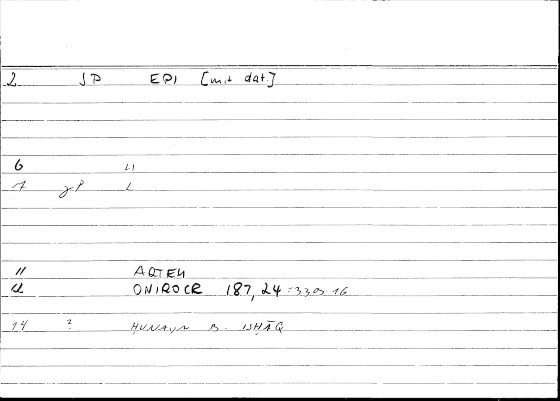 2 SP EPI [mit dat.]
6 LI
7 gP L
11 ARTEM
12 ONIROCR 187, 24 : 330 16
14 ? ḤUNAYN B. ISḤĀQ